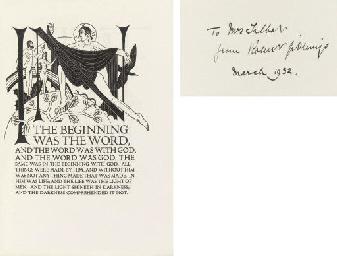 IN
THE BEGINNING
WAS THE WORD,
AND THE WORD WAS WITH GOD,
AND THE WORD WAS GOD. THE
SAME WAS IN THE BEGINNING WITH GOD. ALL
THINGS WERE MADE BY HIM, AND WITHOUT HIM
WAS NOT ANY THING MADE THAT WAS MADE. IN
HIM WAS LIFE; AND THE LIFE WAS THE LIGHT OF
MEN. AND THE LIGHT SHINETH IN DARKNESS;
AND THE DARKNESS COMPREHENDED IT NOT.
To Mrs
from Robert Gibbings
March 1932.